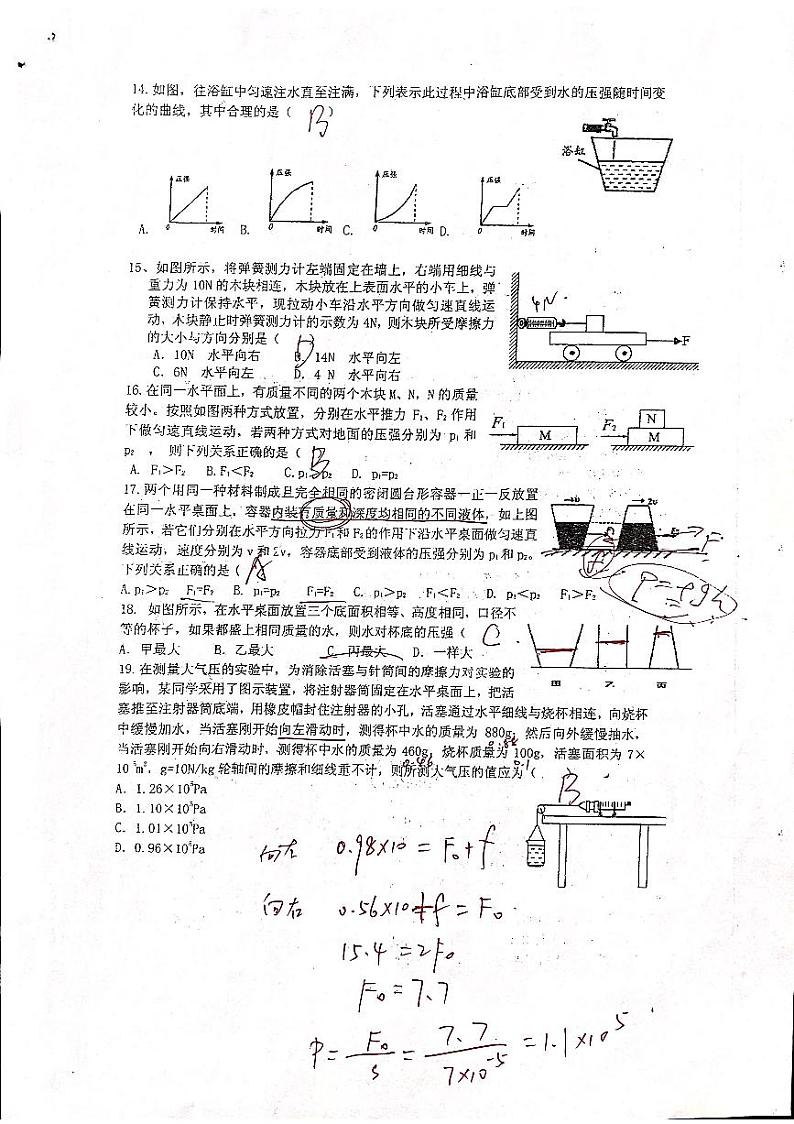 14.如图，往浴缸中匀速注水直至注满，下列表示此过程中浴缸底部受到水的压强随时间变
化的曲线，其中合理的是（ B ）
浴缸
压强 压强 压强 压强
A. 0 时间 B. 0 时间 C. 0 时间 D. 0 时间
15、如图所示，将弹簧测力计左端固定在墙上，右端用细线与
重力为 10N 的木块相连，木块放在上表面水平的小车上，弹
簧测力计保持水平，现拉动小车沿水平方向做匀速直线运
动，木块静止时弹簧测力计的示数为 4N，则木块所受摩擦力
的大小与方向分别是（ D ）
4N
F
A. 10N 水平向右 B. 14N 水平向左
C. 6N 水平向左 D. 4 N 水平向右
16.在同一水平面上，有质量不同的两个木块 M、N，N 的质量
较小。按照如图两种方式放置，分别在水平推力 F₁、F₂ 作用
下做匀速直线运动，若两种方式对地面的压强分别为 p₁ 和
p₂ ， 则下列关系正确的是（ B
F₁ M F₂ N M
A. F₁>F₂ B. F₁<F₂ C. p₁ p₂ D. p₁=p₂
17.两个用同一种材料制成且完全相同的密闭圆台形容器一正一反放置
在同一水平桌面上，容器内装有质量和深度均相同的不同液体，如上图
所示，若它们分别在水平方向拉力 F₁和 F₂的作用下沿水平桌面做匀速直
线运动，速度分别为 v 和 2v，容器底部受到液体的压强分别为 p₁和 p₂。
下列关系正确的是（ A
v 2v
F
f
P=ρgh
A. p₁>p₂ F₁=F₂ B. p₁=p₂ F₁=F₂ C. p₁>p₂ F₁<F₂ D. p₁<p₂ F₁>F₂
18. 如图所示，在水平桌面放置三个底面积相等、高度相同，口径不
等的杯子，如果都盛上相同质量的水，则水对杯底的压强（ C
A. 甲最大 B. 乙最大 C. 丙最大 D. 一样大
甲 乙 丙
19.在测量大气压的实验中，为消除活塞与针筒间的摩擦力对实验的
影响，某同学采用了图示装置，将注射器筒固定在水平桌面上，把活
塞推至注射器筒底端，用橡皮帽封住注射器的小孔，活塞通过水平细线与烧杯相连，向烧杯
中缓慢加水，当活塞刚开始向左滑动时，测得杯中水的质量为 880g；然后向外缓慢抽水，
0.88
当活塞刚开始向右滑动时，测得杯中水的质量为 460g，烧杯质量为 100g，活塞面积为 7×
0.46 0.1
10⁻⁵m²，g=10N/kg 轮轴间的摩擦和细线重不计，则所测大气压的值应为（ B
A. 1.26×10⁵Pa
B. 1.10×10⁵Pa
C. 1.01×10⁵Pa
D. 0.96×10⁵Pa
向左 0.98×10=F₀+f
向右 0.56×10+f=F₀
15.4=2F₀
F₀=7.7
P=F₀/S=7.7/7×10⁻⁵=1.1×10⁵